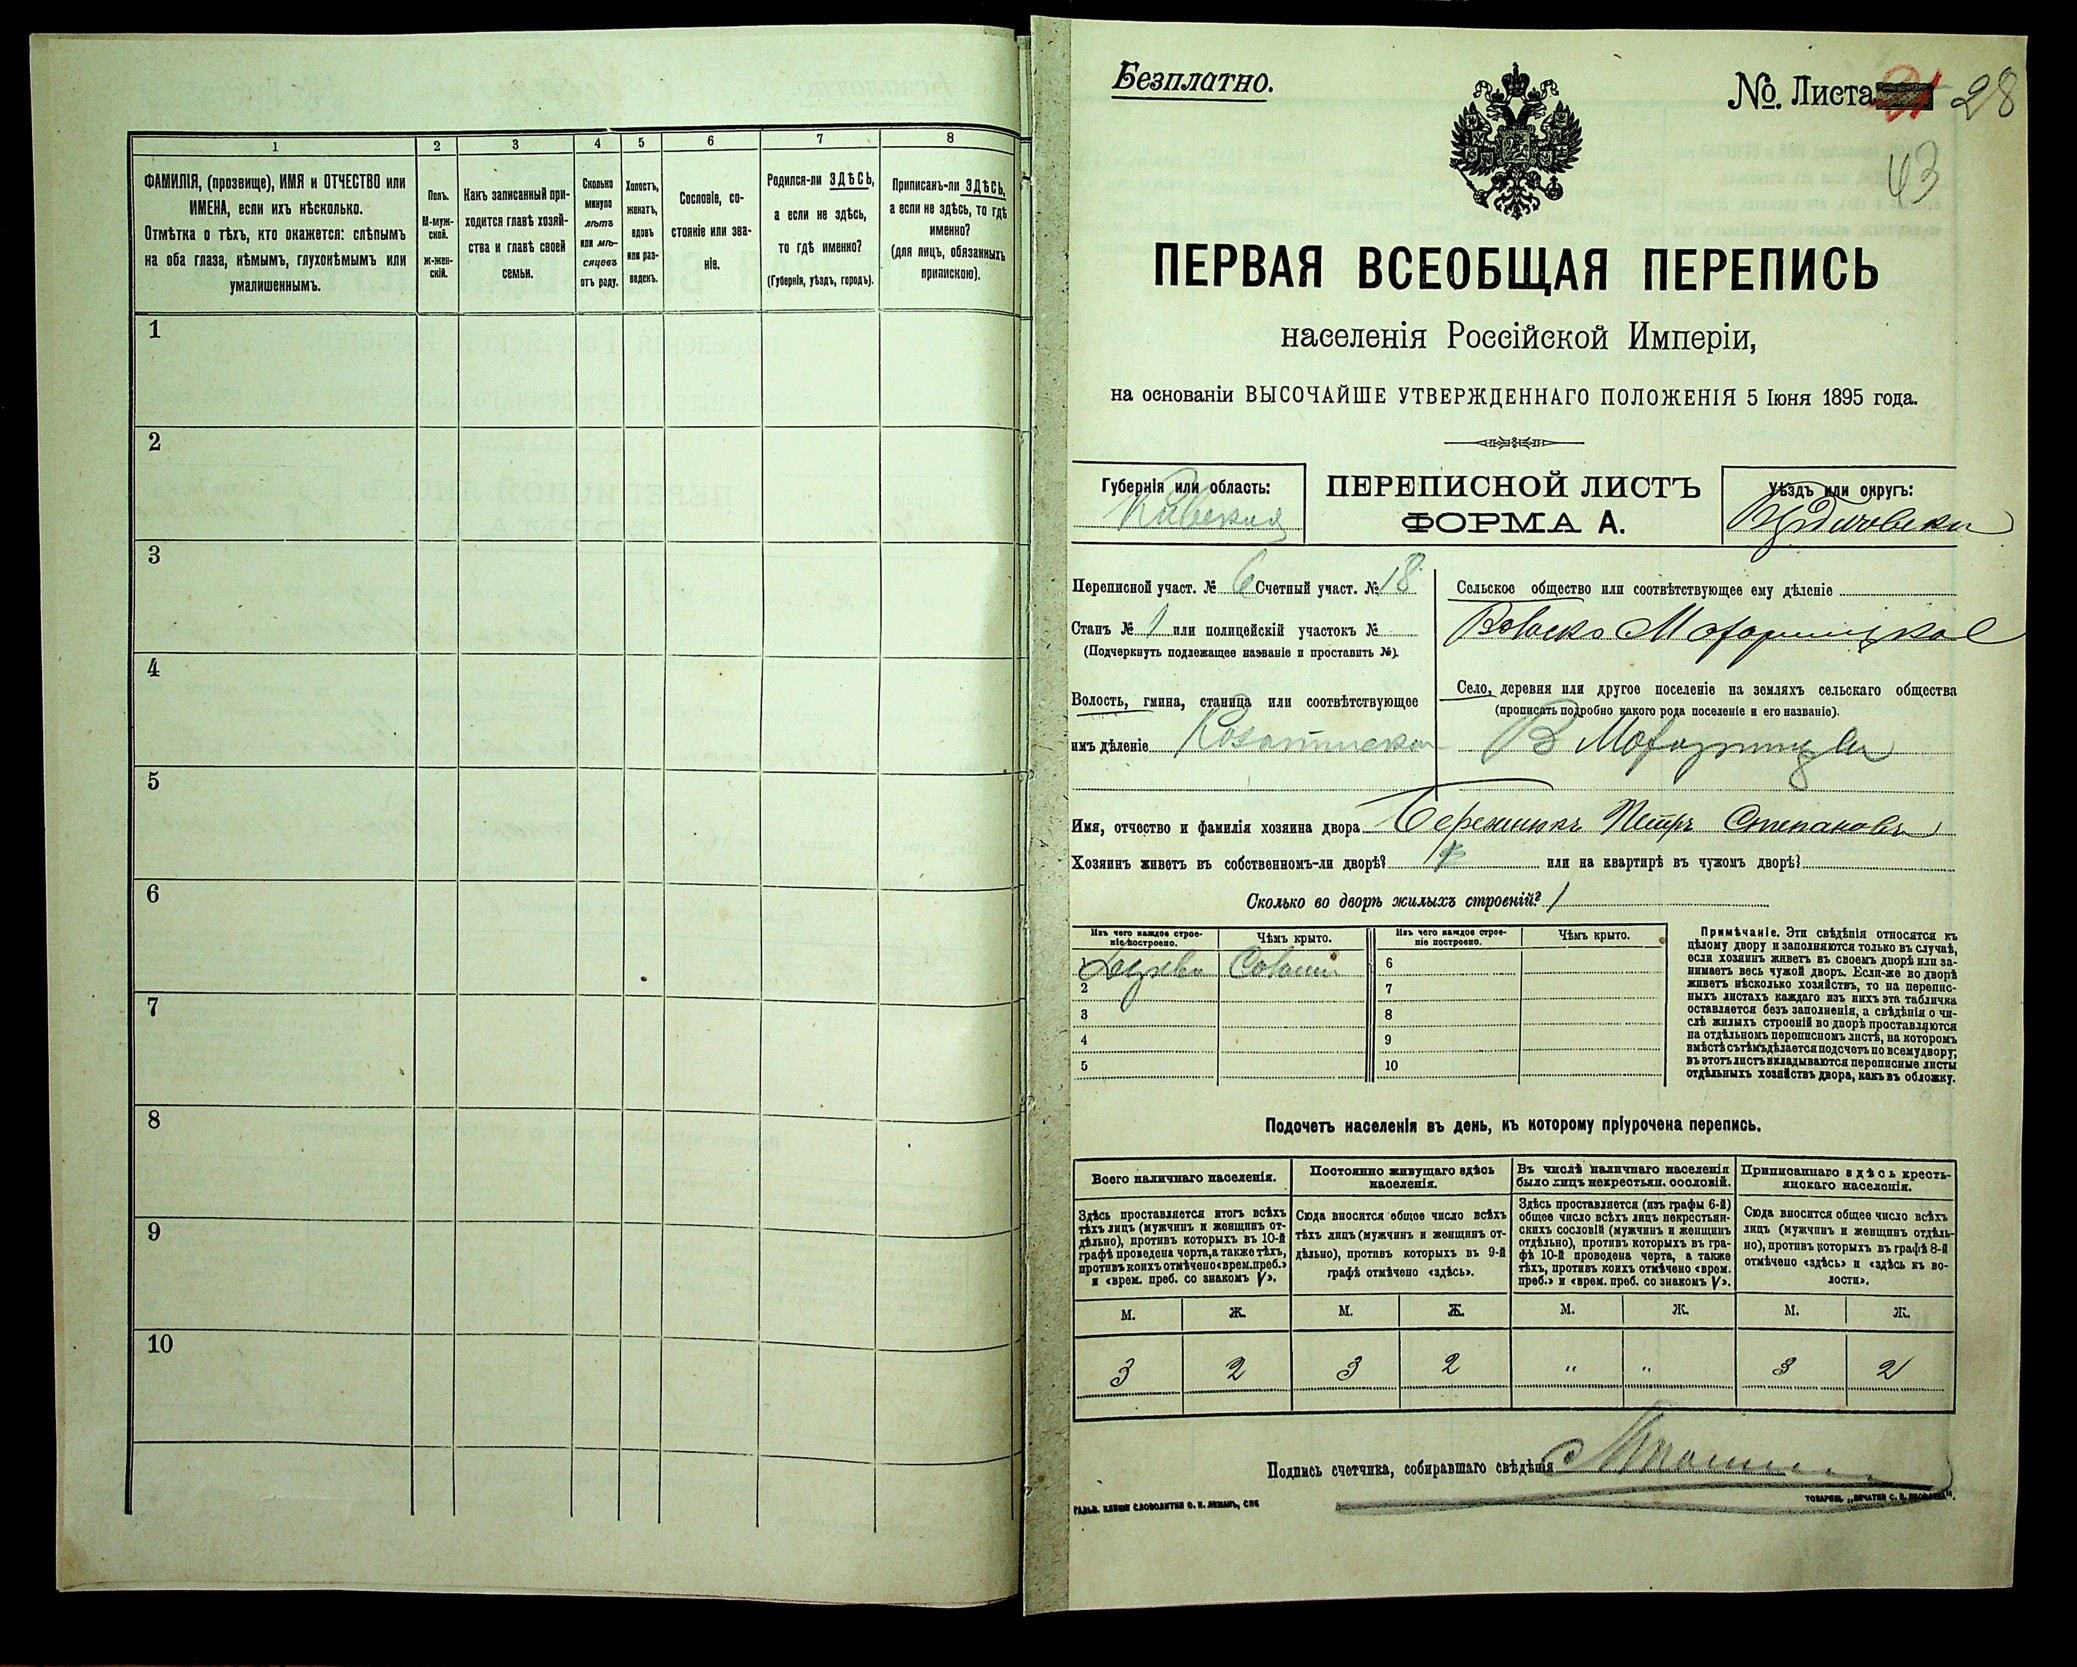 1
2
3
4
5
6
7
8
ФАМИЛІЯ, (прозвище), ИМЯ и ОТЧЕСТВО или
ИМЕНА, если ихъ нѣсколько.
Отмѣтка о тѣхъ, кто окажется: слѣпымъ
на оба глаза, нѣмымъ, глухонѣмымъ или
умалишеннымъ.
Полъ.
М-муж-
ской.
Ж-жен-
скій.
Какъ записанный при-
ходится главѣ хозяй-
ства и главѣ своей
семьи.
Сколько
минуло
лѣтъ
или мѣ-
сяцевъ
отъ роду.
Холостъ,
женатъ,
вдовъ
или раз-
веденъ.
Сословіе, со-
стояніе или зва-
ніе.
Родился-ли ЗДѢСЬ,
а если не здѣсь,
то гдѣ именно?
(Губернія, уѣздъ, городъ).
Приписанъ-ли ЗДѢСЬ,
а если не здѣсь, то гдѣ
именно?
(для лицъ, обязанныхъ
припискою).
1
2
3
4
5
6
7
8
9
10
Безплатно.
№ Листа 28
43
ПЕРВАЯ ВСЕОБЩАЯ ПЕРЕПИСЬ
населенія Россійской Имперіи,
на основаніи ВЫСОЧАЙШЕ УТВЕРЖДЕННАГО ПОЛОЖЕНІЯ 5 Іюня 1895 года.
Губернія или область:
Кіевская
ПЕРЕПИСНОЙ ЛИСТЪ
ФОРМА А.
Уѣздъ или округъ:
Переписной участ. № 6 Счетный участ. № 18
Станъ № 1 или полицейскій участокъ №
(Подчеркнуть подлежащее названіе и проставить №).
Волость, гмина, станица или соотвѣтствующее
имъ дѣленіе
Сельское общество или соотвѣтствующее ему дѣленіе
Село, деревня или другое поселеніе на земляхъ сельскаго общества
(прописать подробно какого рода поселеніе и его названіе).
Имя, отчество и фамилія хозяина двора Петръ Степановъ
Хозяинъ живетъ въ собственномъ-ли дворѣ? или на квартирѣ въ чужомъ дворѣ?
Сколько во дворѣ жилыхъ строеній? 1
Изъ чего каждое строе-
ніе построено.
Чѣмъ крыто.
Изъ чего каждое строе-
ніе построено.
Чѣмъ крыто.
1
2
3
4
5
6
7
8
9
10
Примѣчаніе. Эти свѣдѣнія относятся къ
цѣлому двору и заполняются только въ случаѣ,
если хозяинъ живетъ въ своемъ дворѣ или за-
нимаетъ весь чужой дворъ. Если-же во дворѣ
живетъ нѣсколько хозяйствъ, то на перепис-
ныхъ листахъ каждаго изъ нихъ эта табличка
оставляется безъ заполненія, а свѣдѣнія о чи-
слѣ жилыхъ строеній во дворѣ проставляются
на отдѣльномъ переписномъ листѣ, на которомъ
вмѣстѣ съ тѣмъ дѣлается подсчетъ по всему двору;
въ этотъ листъ вкладываются переписные листы
отдѣльныхъ хозяйствъ двора, какъ въ обложку.
Подочетъ населенія въ день, къ которому пріурочена перепись.
Всего наличнаго населенія.
Постоянно живущаго здѣсь
населенія.
Въ числѣ наличнаго населенія
было лицъ некрестьян. сословій.
Приписаннаго здѣсь кресть-
янскаго населенія.
Здѣсь проставляется итогъ всѣхъ
тѣхъ лицъ (мужчинъ и женщинъ от-
дѣльно), противъ которыхъ въ 10-й
графѣ проведена черта, а также тѣхъ,
противъ коихъ отмѣчено «врем. преб.»
и «врем. преб. со знакомъ V».
Сюда вносится общее число всѣхъ
тѣхъ лицъ (мужчинъ и женщинъ от-
дѣльно), противъ которыхъ въ 9-й
графѣ отмѣчено «здѣсь».
Здѣсь проставляется (изъ графы 6-й)
общее число всѣхъ лицъ некрестьян-
скихъ сословій (мужчинъ и женщинъ
отдѣльно), противъ которыхъ въ гра-
фѣ 10-й проведена черта, а также
тѣхъ, противъ коихъ отмѣчено «врем.
преб.» и «врем. преб. со знакомъ V».
Сюда вносится общее число всѣхъ
лицъ (мужчинъ и женщинъ отдѣль-
но), противъ которыхъ въ графѣ 8-й
отмѣчено «здѣсь» и «здѣсь къ во-
лости».
М. Ж. М. Ж. М. Ж. М. Ж.
3 2 3 2 " " 3 2
Подпись счетчика, собиравшаго свѣдѣнія
ГАЛЬВ. КЛИШЕ СЛОВОЛИТНИ О. И. ЛЕМАНЪ, СПБ
ТОВАРИЩ. „ПЕЧАТНИ С. П. ЯКОВЛЕВА".